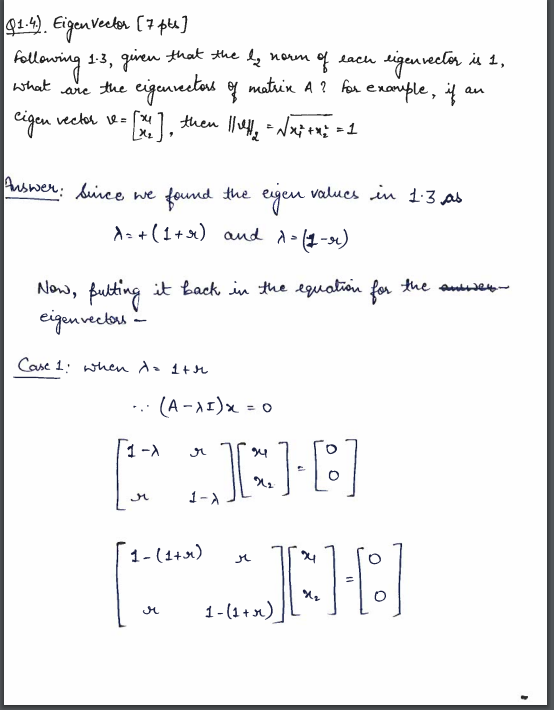 Q1.4). Eigen Vector [7 pts]
Following 1.3, given that the l₂ norm of each eigenvector is 1,
what are the eigenvectors of matrix A? For example, if an
eigen vector v = [x₁ x₂], then ||v||₂ = √x₁² + x₂² = 1
Answer: Since we found the eigen values in 1.3 as
λ = +(1+r) and λ = (1-r)
Now, putting it back in the equation for the answer
eigenvectors –
Case 1: when λ = 1+r
∵ (A-λI)x = 0
[1-λ r [x₁ = [0
r 1-λ] x₂] 0]
[1-(1+r) r [x₁ = [0
r 1-(1+r)] x₂] 0]